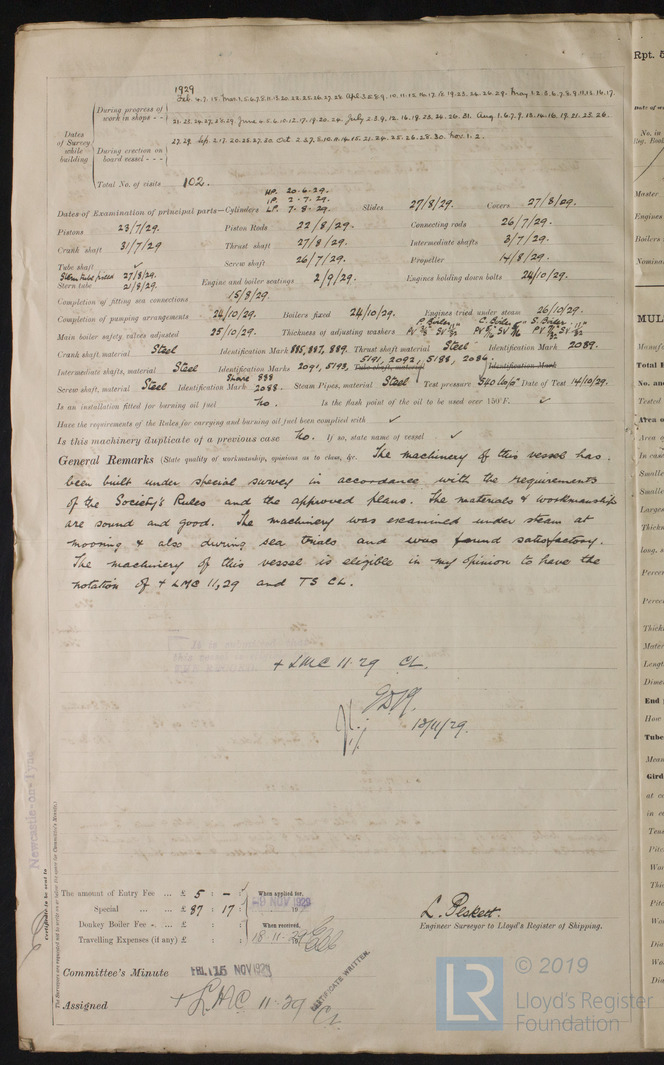 1929
During progress of work in shops - - Feb. 4.7.15. Mar. 1.5.6.7.8.11.13.20.22.25.26.27.28. Apl. 3.5.8.9.10.11.12.16.17.18.19.23.24.26.29. May 1.2.3.6.7.8.9.13.14.16.17.
21.23.24.27.28.29. June 4.5.6.10.12.17.19.20.24. July 2.3.9.12.16.18.23.24.26.31. Aug. 1.6.7.9.13.14.16.19.21.23.26.
Dates of Survey while building
During erection on board vessel - - - 27.29. Sep. 2.17.20.25.27.30. Oct 2.3.7.8.10.11.14.15.21.24.25.26.28.30. Nov. 1.2.
Total No. of visits 102.
HP. 20.6.29.
IP. 2.7.29.
Dates of Examination of principal parts—Cylinders LP. 7.8.29. Slides 27/8/29. Covers 27/8/29.
Pistons 23/7/29. Piston Rods 22/8/29. Connecting rods 26/7/29.
Crank shaft 31/7/29 Thrust shaft 27/8/29. Intermediate shafts 3/7/29.
Tube shaft ✓ Screw shaft 26/7/29. Propeller 14/8/29.
Stern tube 21/8/29. Engine and boiler seatings 2/9/29. Engines holding down bolts 24/10/29.
Completion of fitting sea connections 15/8/29.
Completion of pumping arrangements 24/10/29. Boilers fixed 24/10/29. Engines tried under steam 26/10/29.
P. Boiler C. Boiler S. Boiler
Main boiler safety valves adjusted 25/10/29. Thickness of adjusting washers
Crank shaft material Steel Identification Mark 885, 887, 889. Thrust shaft material Steel Identification Mark 2089.
5191, 2092, 5188, 2086.
Intermediate shafts, material Steel Identification Marks 2091, 5193, Tube shaft, material Identification Mark
Spare 888
Screw shaft, material Steel Identification Mark 2088. Steam Pipes, material Steel Test pressure 540 lbs/□" Date of Test 14/10/29.
Is an installation fitted for burning oil fuel no. Is the flash point of the oil to be used over 150°F. ✓
Have the requirements of the Rules for carrying and burning oil fuel been complied with ✓
Is this machinery duplicate of a previous case no. If so, state name of vessel ✓
General Remarks (State quality of workmanship, opinions as to class, &c. The machinery of this vessel has
been built under special survey in accordance with the requirements
of the Society's Rules and the approved plans. The materials & workmanship
are sound and good. The machinery was examined under steam at
mooring & also during sea trials and was found satisfactory.
The machinery of this vessel is eligible in my opinion to have the
notation of + LMC 11,29 and TS CL.
+ LMC 11.29 CL.
13/11/29.
Newcastle-on-Tyne
Certificate to be sent to
The Surveyors are requested not to write on or below the space for Committee's Minute.
The amount of Entry Fee ... £ 5 : - : When applied for.
Special ... ... £ 87 : 17 : -9 NOV 1929
Donkey Boiler Fee ... £ : : When received.
Travelling Expenses (if any) £ : : 18.11.29
L. Peskett.
Engineer Surveyor to Lloyd's Register of Shipping.
Committee's Minute FRI. 15 NOV 1929
CERTIFICATE WRITTEN.
Assigned + LMC 11.29
CL.
LR
© 2019
Lloyd's Register
Foundation
Rpt. 5
No. in
Master
Engines
Boilers
MUL
Total
No. and
Tested
Area o
Area o
In case
Smalle
Smalle
Larges
Thickn
long. s
Percen
Percen
Thickn
Mater
Length
Dime
End
How
Tube
Mean
Gird
at ce
in ce
Tens
Pitc